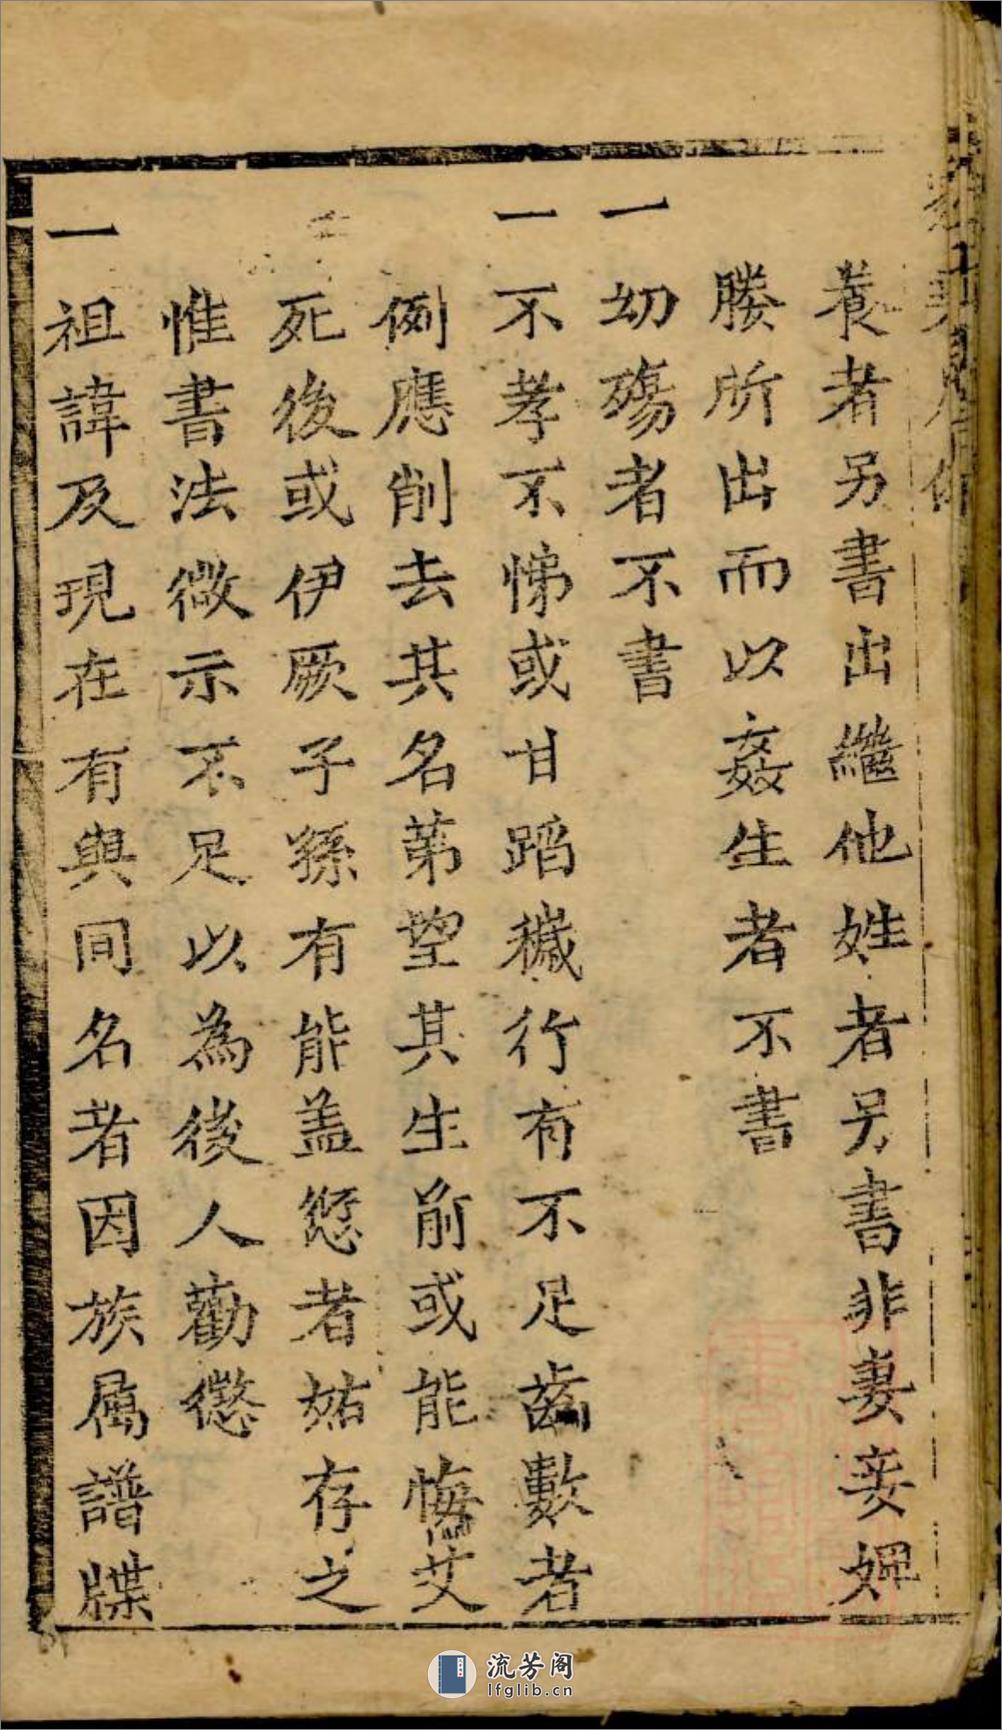 養者另書出繼他姓者另書非妻妾婢
媵所出而以姦生者不書
一幼殤者不書
一不孝不悌或甘蹈穢行有不足齒數者
例應削去其名第望其生前或能悔艾
死後或伊厥子孫有能盖愆者姑存之
惟書法微示不足以為後人勸懲
一祖諱及現在有與同名者因族属譜牒
流芳阁
lfglib.cn